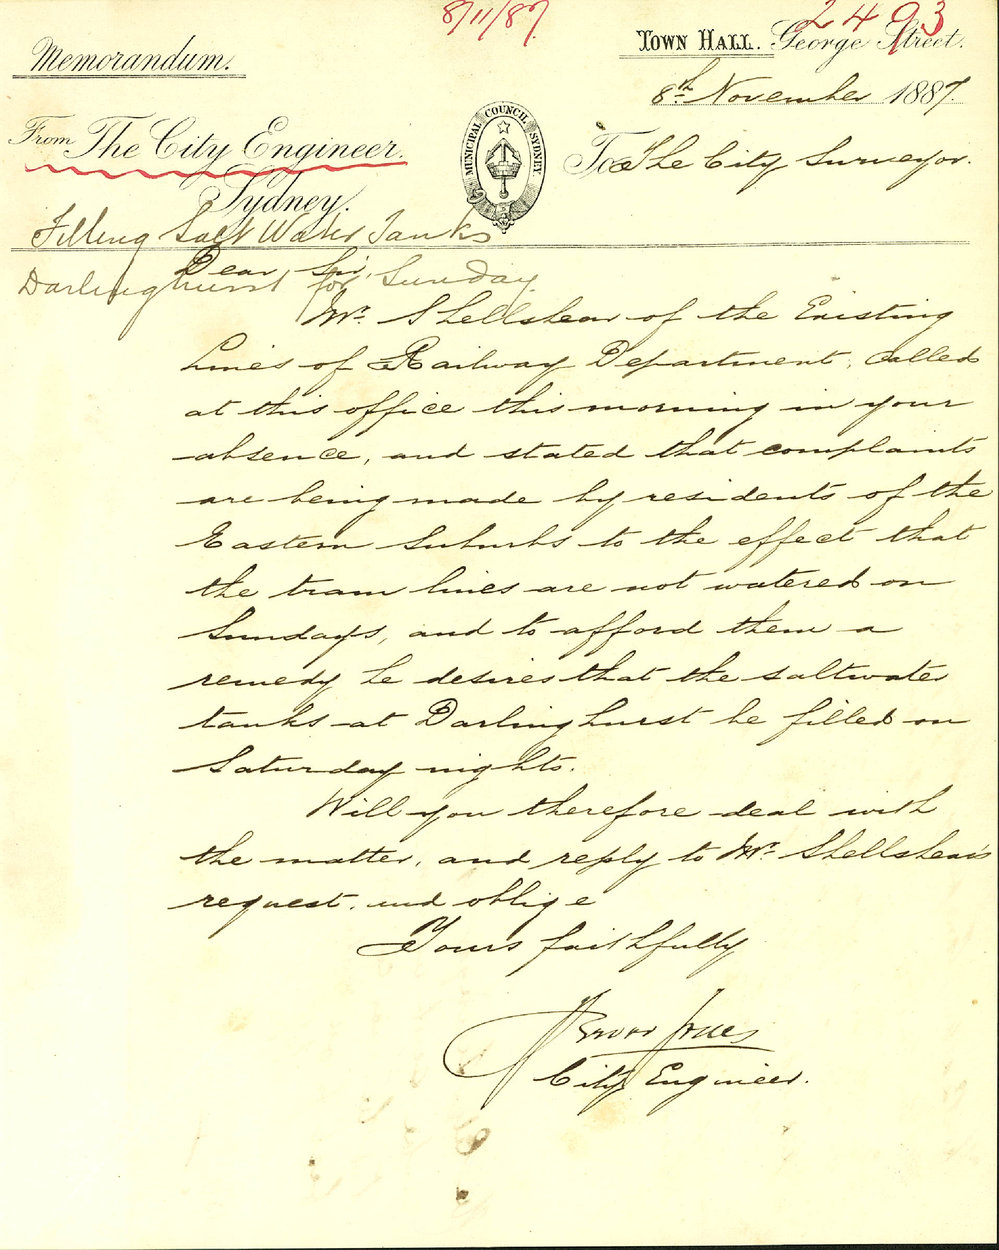 8/11/87.
2493
Memorandum.
Town Hall. George Street.
8th November 1887.
From The City Engineer.
Sydney.
MUNICIPAL COUNCIL SYDNEY.
To The City Surveyor.
Filling Salt Water Tanks
Darlinghurst for Sunday.
Dear Sir,
Mr. Shellshear of the Existing
Lines of Railway Department, called
at this office this morning in your
absence, and stated that complaints
are being made by residents of the
Eastern Suburbs to the effect that
the tram lines are not watered on
Sundays, and to afford them a
remedy he desires that the saltwater
tanks at Darlinghurst be filled on
Saturday nights.
Will you therefore deal with
the matter, and reply to Mr. Shellshear's
request, and oblige
Yours faithfully
City Engineer.